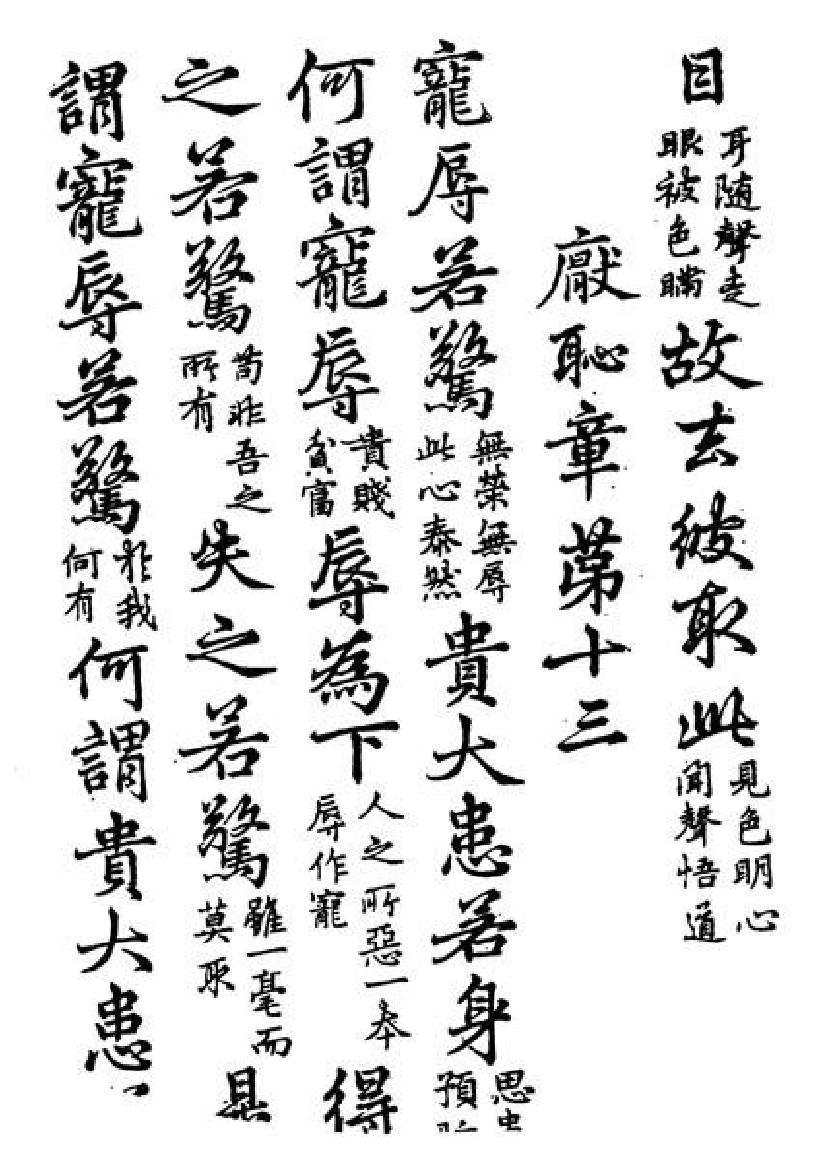 目耳随聲走眼被色瞞故去彼取此見色明心聞聲悟道
厭恥章第十三
寵辱若驚無榮無辱此心泰然貴大患若身思預
何謂寵辱貴賤貧富辱為下人之所惡一辱作寵得
之若驚苟非吾之所有失之若驚雖一毫而莫取是
謂寵辱若驚於我何有何謂貴大患